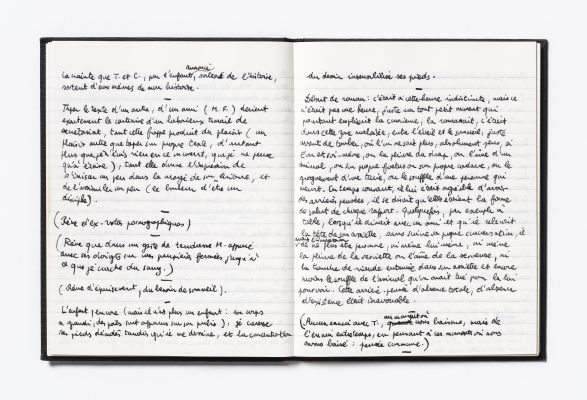 amusé
la crainte que T. et C., par l'enfant, sortent de l'histoire,
sortent d'eux-mêmes de mon histoire.
Taper le texte d'un autre, d'un ami (M. F.) devient
seulement le contraire d'un laborieux travail de
secrétariat, tant elle frappe produit du plaisir (un
plaisir autre que taper son propre texte, d'autant
plus que je n'ai rien en ce moment, que je ne pense
qu'à écrire), tant elle donne l'impression de
s'initier un peu dans la magie de son écriture, et
de l'assimiler un peu (le bonheur d'être un
disciple).
(Rêve d'ex-votos pornographiques)
(Rêve que dans un geste de tendresse M. appuie
avec ses doigts sur mes paupières fermées, jusqu'à
ce que je crache du sang.)
(Rêve d'épuisement, du besoin de sommeil).
L'enfant, encore (mais il n'est plus un enfant : son corps
a grandi, des poils sont apparus sur son pubis) : je caresse
ses pieds dénudés tandis qu'il me dessine, et la concentration
du dessin insensibilise ses pieds.
Début de roman : c'était à cette heure indistincte, mais ce
n'était pas une heure, juste un tout petit moment qui
pourtant emplissait la conscience, la ramassait, c'était
dans cette zone malaisée, entre l'éveil et le sommeil, juste
avant de tomber, où l'on ne sait plus, absolument plus, si
l'on est soi-même, ou la pliure du drap, ou l'âme d'un
animal, ou son propre fantôme ou son propre cadavre, ou le
grognement d'une truie, ou le souffle d'une personne qui
meurt. En temps courant, il lui était agréable d'avoir
des arrières pensées, il se disait qu'elles étaient la forme
de salut de chaque rapport. Quelquefois, par exemple à
table, lorsqu'il dînait avec un ami et qu'il relevait
la tête de son assiette, sans suivre aucune conversation, il
mais l'impression
n'était plus personne, ni même lui-même, ni même
la pliure de la serviette ou l'âme de la serveuse, ni
la tranche de viande entamée dans son assiette et encore
moins le souffle de l'animal qu'on avait tué pour la lui
pourvoir. Cette arrière-pensée d'absence totale, d'absence
d'existence était inavouable.
(Aucun ennui avec T., nous baisons, mais de
l'ennui entretemps, en pensant à ces moments où nous
avons baisé : pensée commune.)